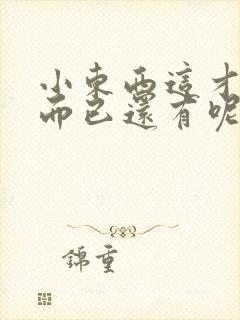 小東西這才
而已還有呢
錦重